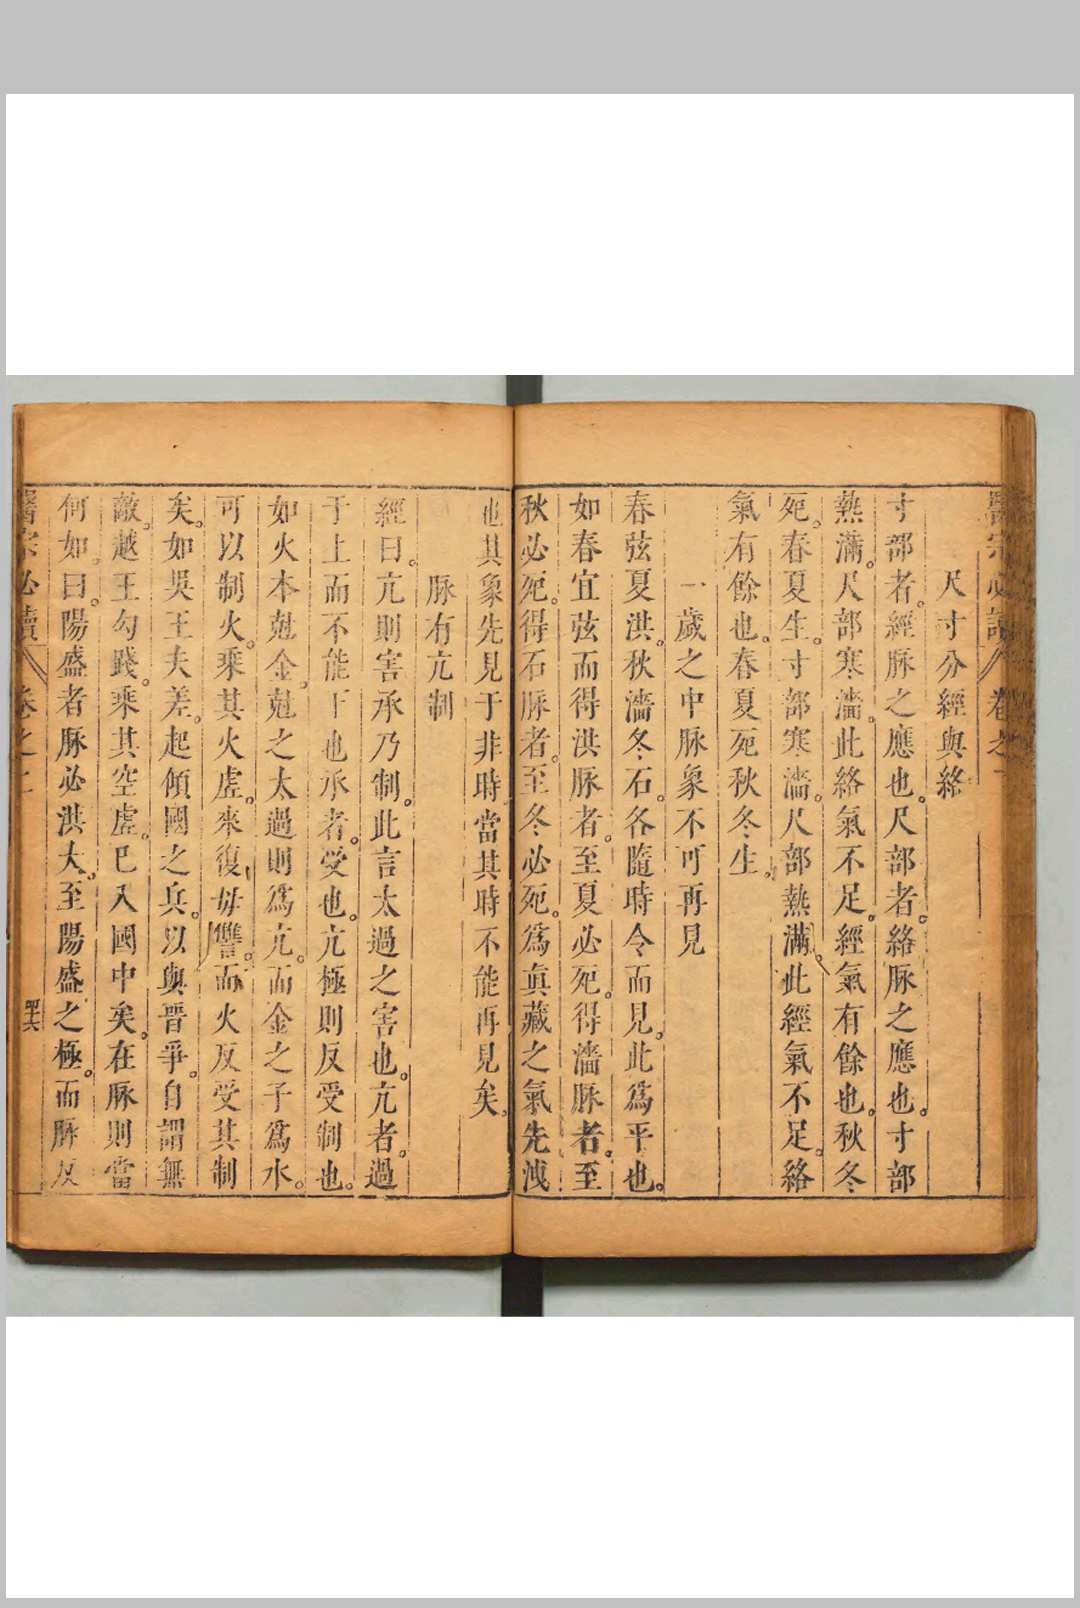 尺寸分經與絡
寸部者。經脉之應也。尺部者。絡脉之應也。寸部
熱滿。尺部寒濇。此絡氣不足。經氣有餘也。秋冬
死。春夏生。寸部寒濇。尺部熱滿。此經氣不足。絡
氣有餘也。春夏死秋冬生。
一歲之中脉象不可再見
春弦夏洪。秋濇冬石。各隨時令而見。此爲平也。
如春宜弦而得洪脉者。至夏必死。得濇脉者。至
秋必死。得石脉者。至冬必死。爲眞藏之氣先洩
也其象先見于非時當其時不能再見矣。
脉有亢制
經曰。亢則害承乃制。此言太過之害也。亢者。過
于上而不能下也承者。受也。亢極則反受制也。
如火本尅金。尅之太過則爲亢。而金之子爲水。
可以制火。乘其火虛。來復母讐。而火反受其制
矣。如吳王夫差。起傾國之兵。以與晉爭。自謂無
敵。越王勾踐。乘其空虛。已入國中矣。在脉則當
何如。曰。陽盛者脉必洪大。至陽盛之極。而脉反
醫宗必讀 卷之二 四十六